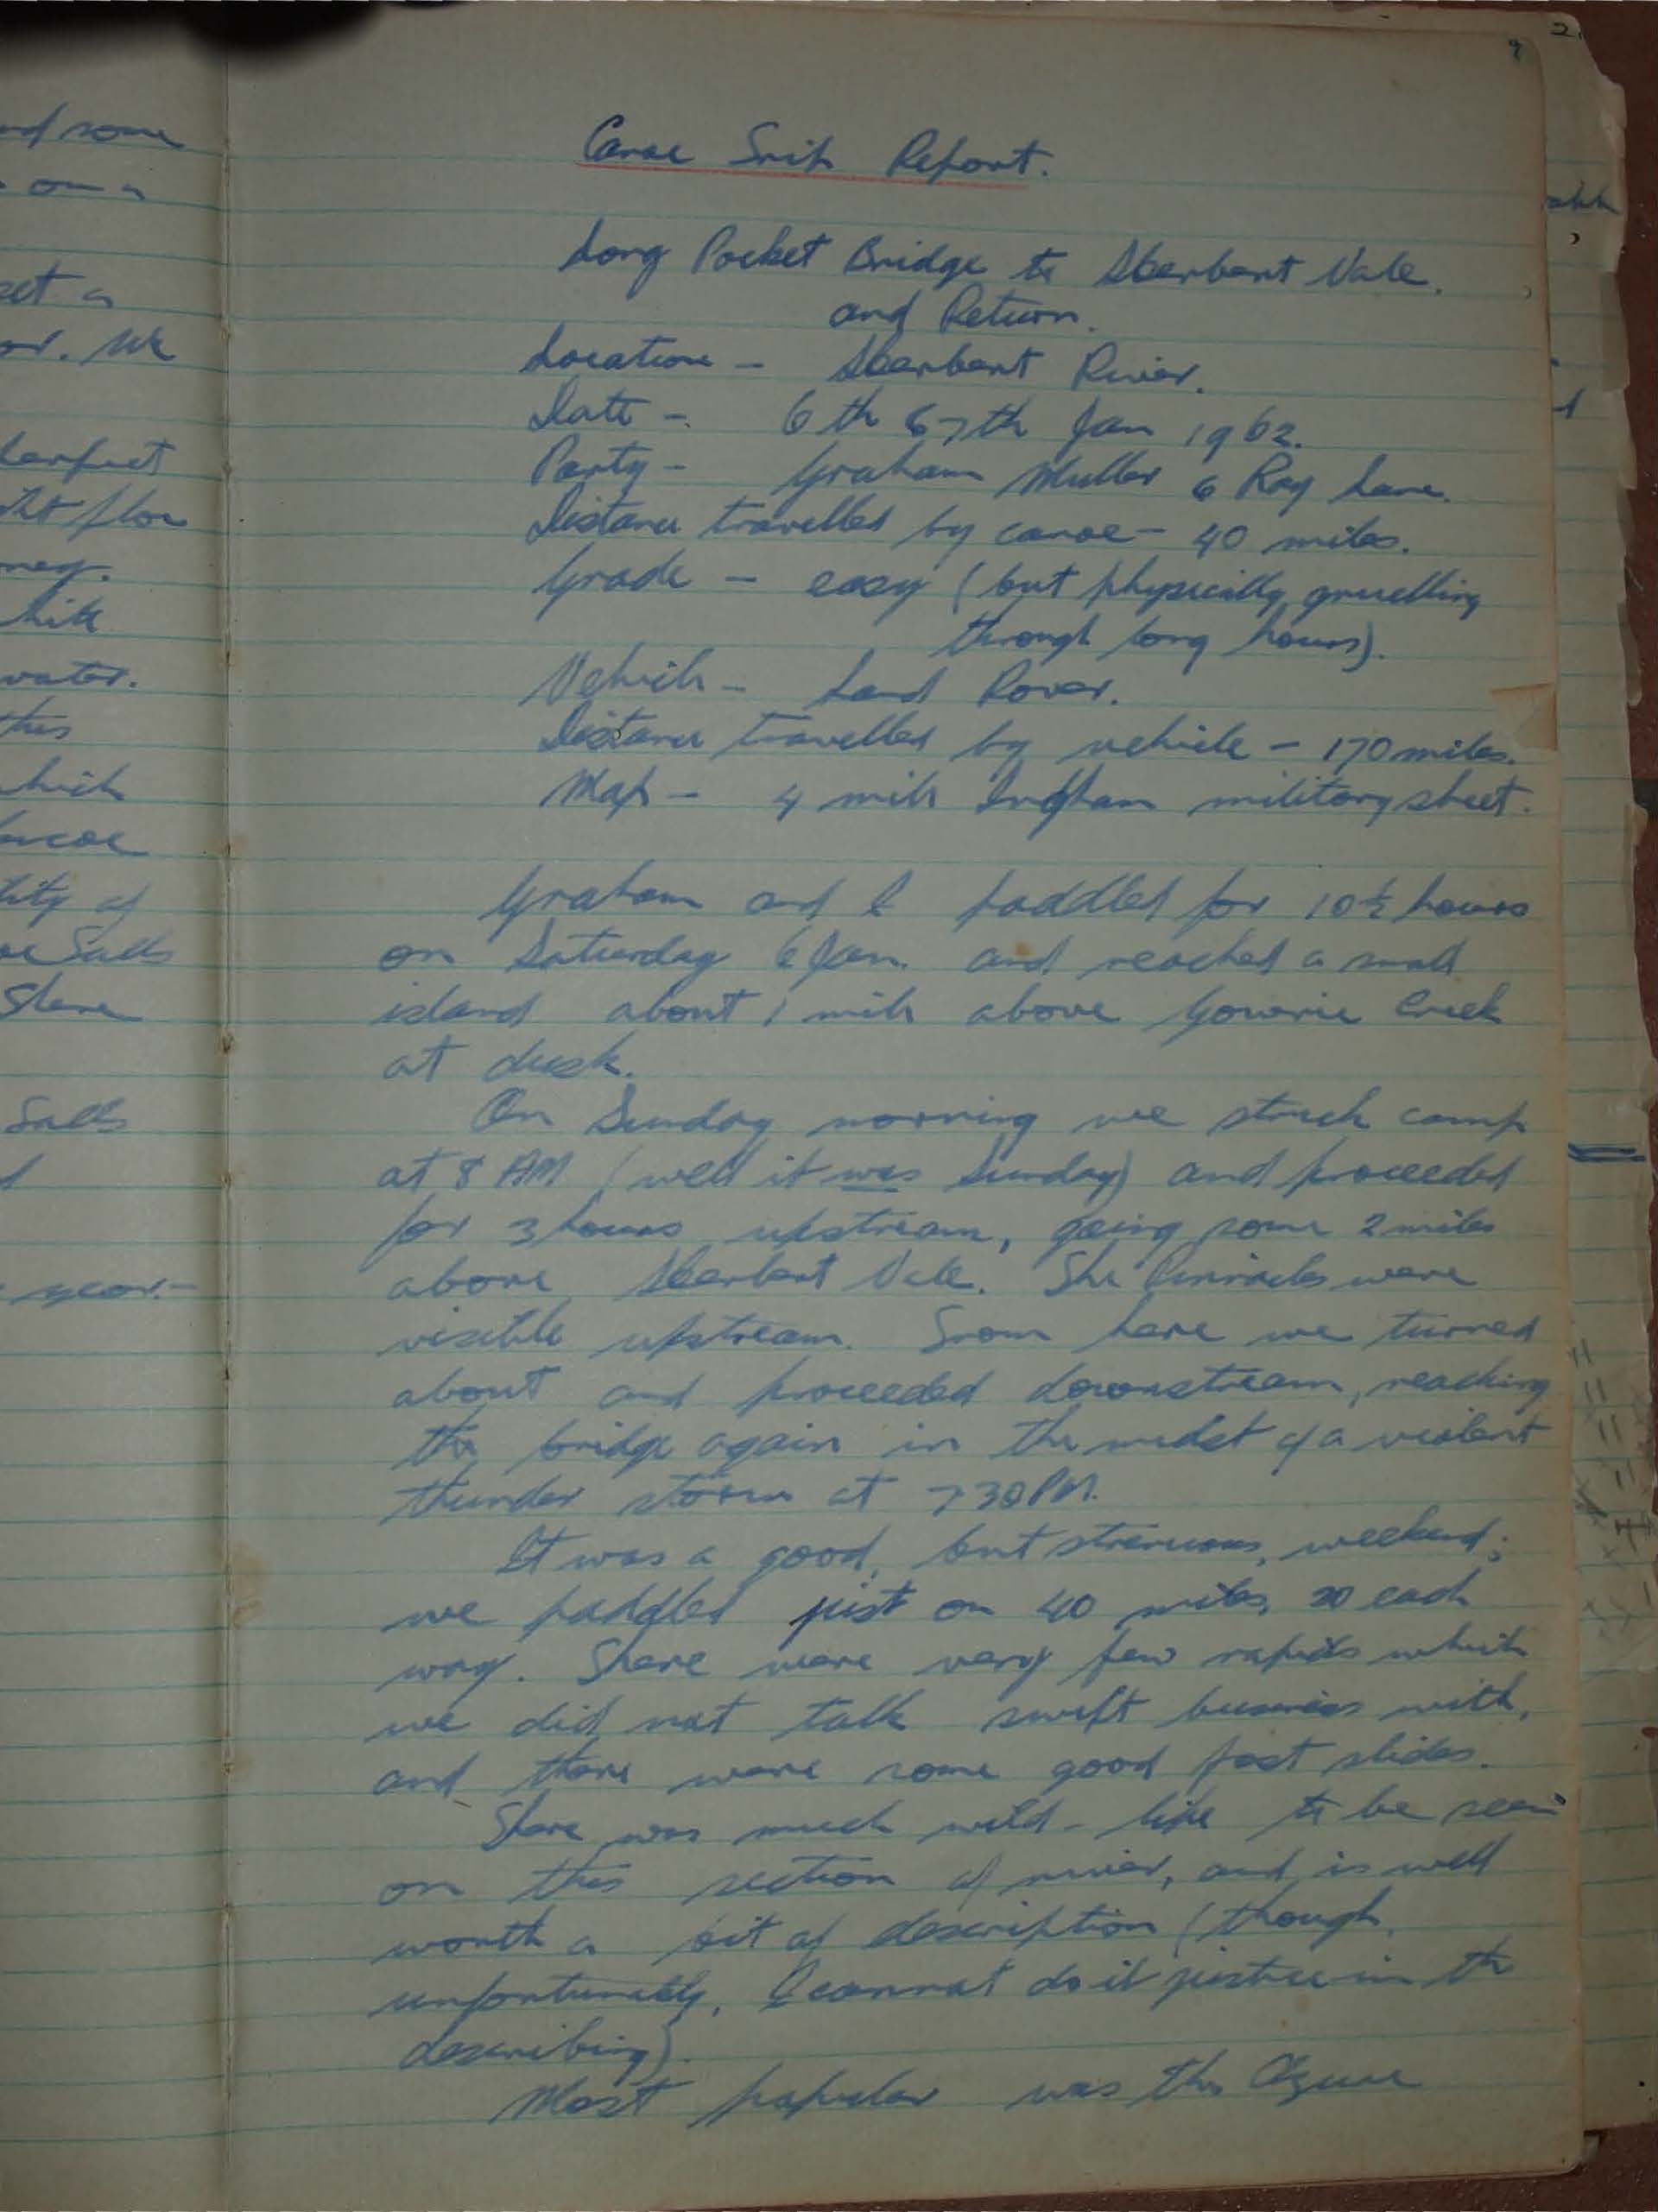 9
Canoe Trip Report.
Long Pocket Bridge to Herbert Vale.
and Return.
Location - Herbert River.
Date - 6th & 7th Jan 1962.
Party - Graham Muller & Ray Lane.
Distance travelled by canoe - 40 miles.
Grade - easy (but physically gruelling
through long hours).
Vehicle - Land Rover.
Distance travelled by vehicle - 170 miles.
Map - 4 mile Ingham military sheet.
Graham and I paddled for 10½ hours
on Saturday 6 Jan. and reached a small
island about 1 mile above Gowrie Creek
at dusk.
On Sunday morning we struck camp
at 8 AM (well it was Sunday) and proceeded
for 3 hours upstream, going some 2 miles
above Herbert Vale. The Pinnacles were
visible upstream. From here we turned
about and proceeded downstream, reaching
the bridge again in the midst of a violent
thunder storm at 7 30 PM.
It was a good, but strenuous, weekend;
we paddled just on 40 miles, 20 each
way. There were very few rapids which
we did not talk swift business with,
and there were some good fast slides.
There was much wild-life to be seen
on this section of river, and is well
worth a bit of description (though,
unfortunately, I cannot do it justice in the
describing).
Most popular was the Azure
and some
on a
set a
or. We
perfect
flow
hike
water.
this
which
ity of
Falls
There
Falls
year.-